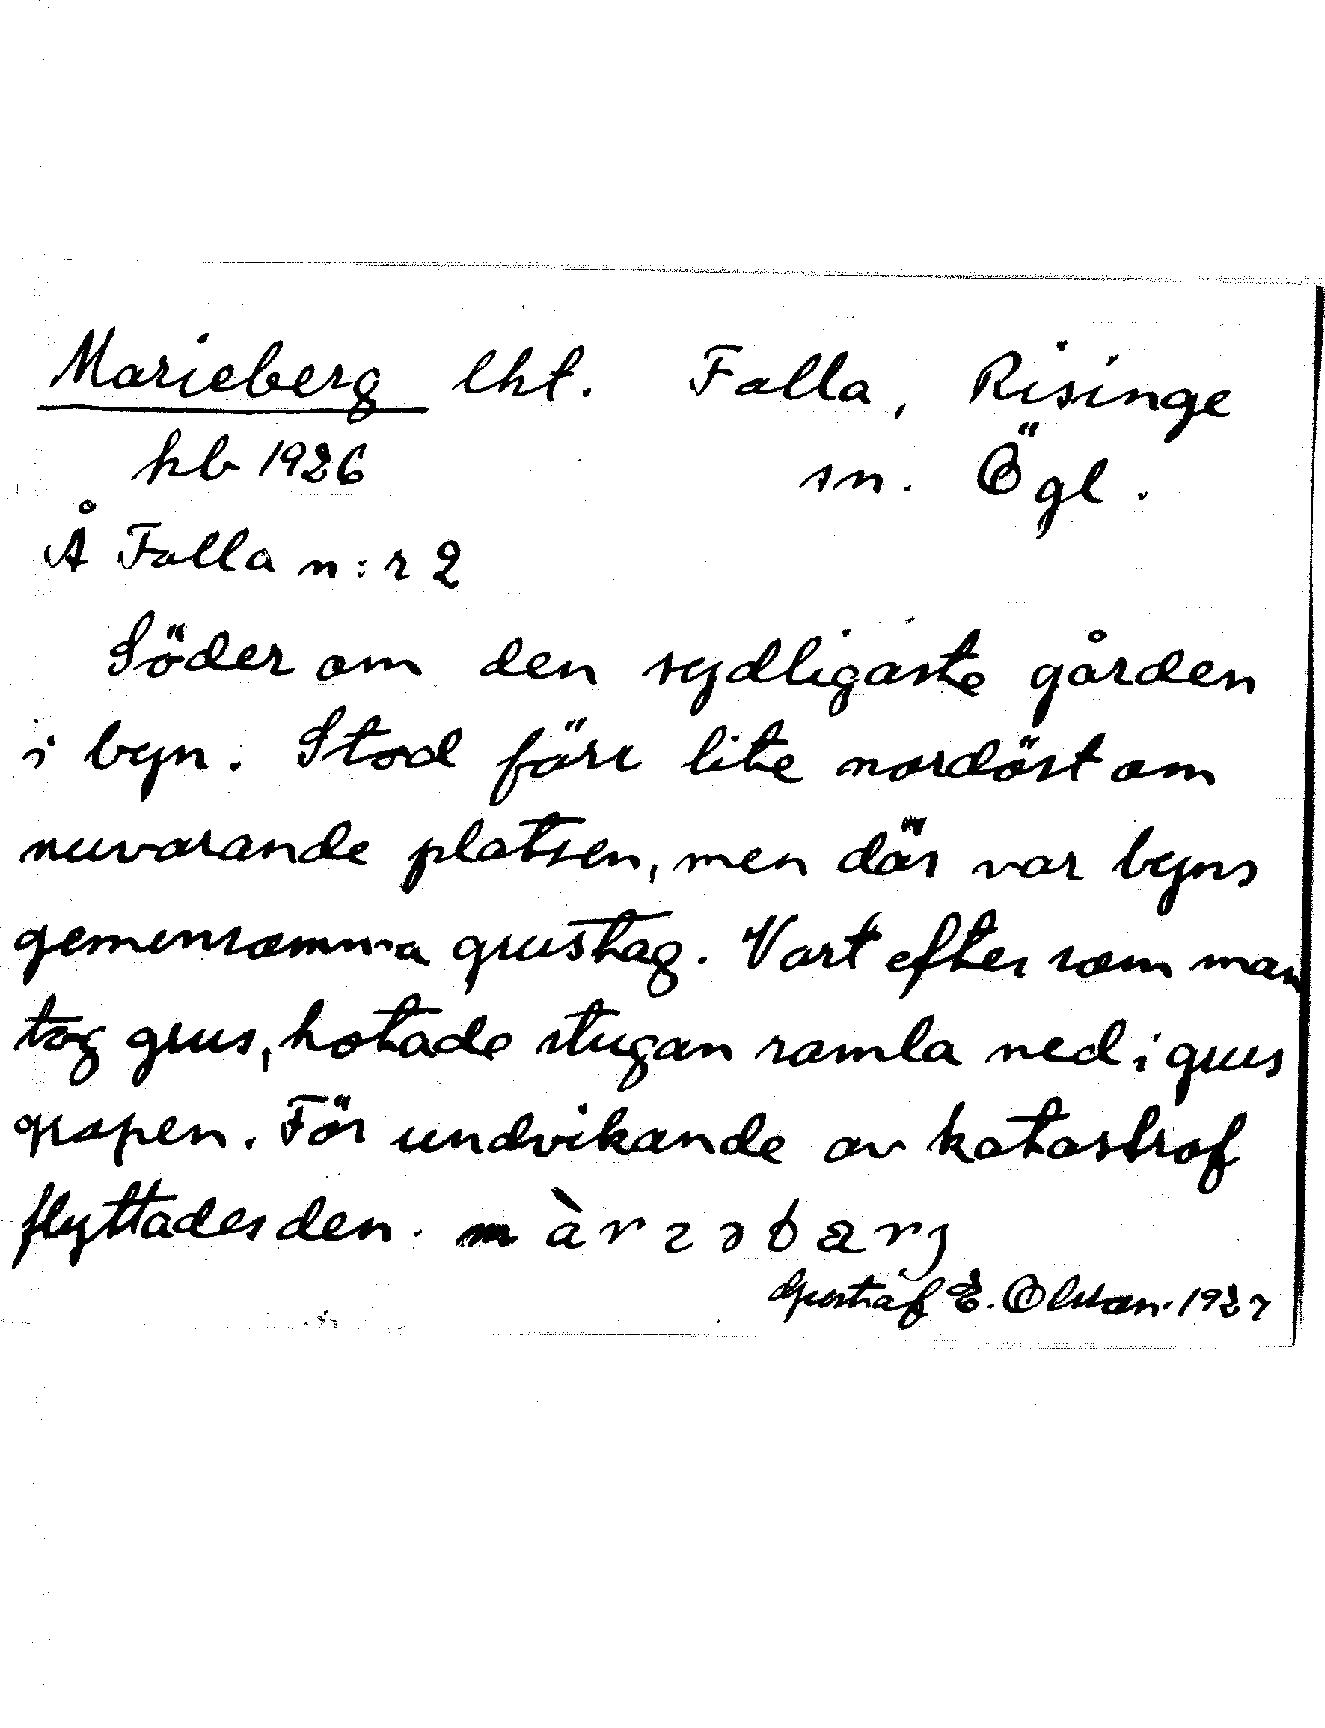 Marieberg lht. Falla, Risinge
hb 1926 sn. Ögl.
Å Falla n:r 2
Söder om den sydligaste gården
i byn. Stod förr lite nordöst om
nuvarande platsen, men där var byns
gemensamma grustag. Vart efter som man
tog grus, hotade stugan ramla ned i grus
gropen. För undvikande av katastrof
flyttades den.
Gustaf E. Olsson. 1927